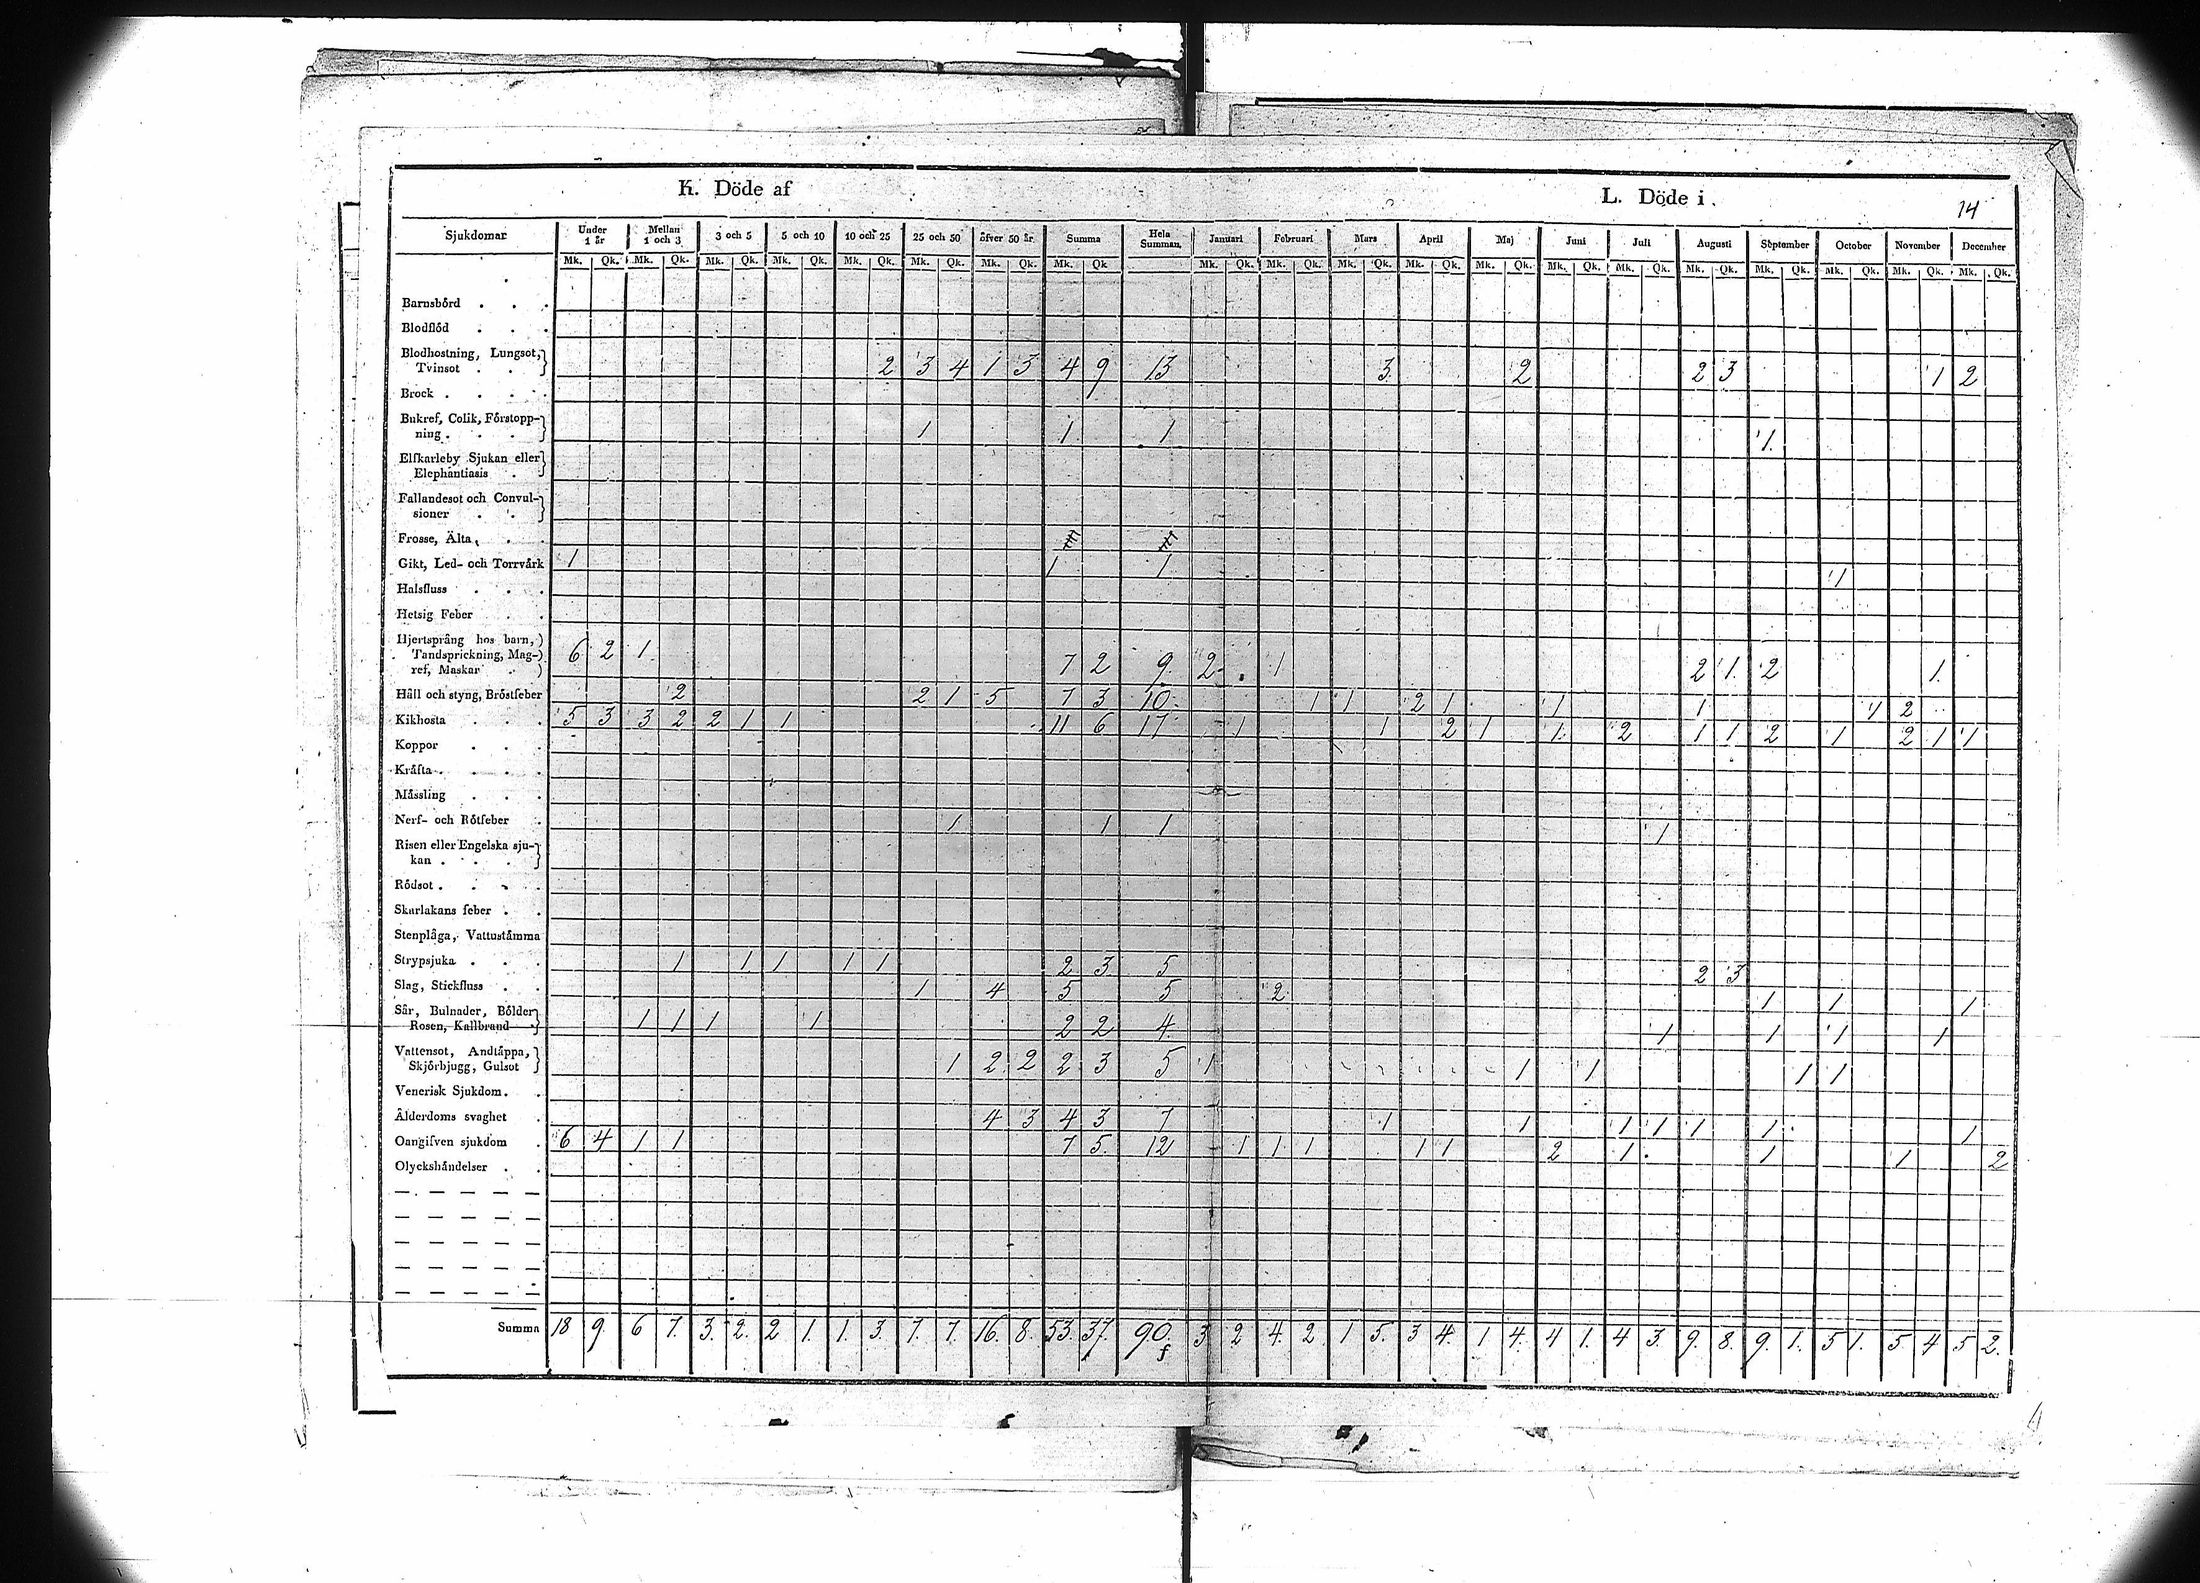 K. Döde af
L. Döde i
14
Sjukdomar Under 1 år Mellan 1 och 3 3 och 5 5 och 10 10 och 25 25 och 50 öfver 50 år Summa Hela Summan Januari Februari Mars April Maj Juni Juli Augusti September October November December
Mk. Qk. Mk. Qk. Mk. Qk. Mk. Qk. Mk. Qk. Mk. Qk. Mk. Qk. Mk. Qk. Mk. Qk. Mk. Qk. Mk. Qk. Mk. Qk. Mk. Qk. Mk. Qk. Mk. Qk. Mk. Qk. Mk. Qk. Mk. Qk. Mk. Qk. Mk. Qk.
Barnsbörd
Blodflöd
Blodhostning, Lungsot,
Tvinsot 2 3 4 1 3 4 9 13 3 2 2 3 1 2
Brock
Bukref, Colik, Förstopp-
ning 1 1 1 1
Elfkarleby Sjukan eller
Elephantiasis
Fallandesot och Convul-
sioner
Frosse, Älta
Gikt, Led- och Torrvärk 1 1 1 1
Halsfluss
Hetsig Feber
Hjertsprång hos barn,
Tandsprickning, Mag-
ref, Maskar 6 2 1 7 2 9 2 1 2 1 2 1
Håll och styng, Bröstfeber 2 2 1 5 7 3 10 1 1 2 1 1 1 1 2
Kikhosta 5 3 3 2 2 1 1 11 6 17 1 1 2 1 1 2 1 1 2 1 2 1 1
Koppor
Kräfta
Mässling
Nerf- och Rötfeber 1 1 1 1
Risen eller Engelska sju-
kan
Rödsot
Skarlakans feber
Stenplåga, Vattustämma
Strypsjuka 1 1 1 1 1 2 3 5 2 3
Slag, Stickfluss 1 4 5 5 2 1 1 1
Sår, Bulnader, Bölder
Rosen, Kallbrand 1 1 1 1 2 2 4 1 1 1 1
Vattensot, Andtäppa,
Skjörbjugg, Gulsot 1 2 2 2 3 5 1 1 1 1 1
Venerisk Sjukdom
Ålderdoms svaghet 4 3 4 3 7 1 1 1 1 1 1 1
Oangifven sjukdom 6 4 1 1 7 5 12 1 1 1 1 1 2 1 1 1 2
Olyckshändelser
Summa 18 9. 6 7. 3. 2. 2 1. 1. 3. 7. 7. 16. 8. 53. 37. 90. 3 2 4. 2 1 5. 3 4. 1 4. 4 1. 4 3. 9. 8. 9. 1. 5 1. 5 4 5 2.